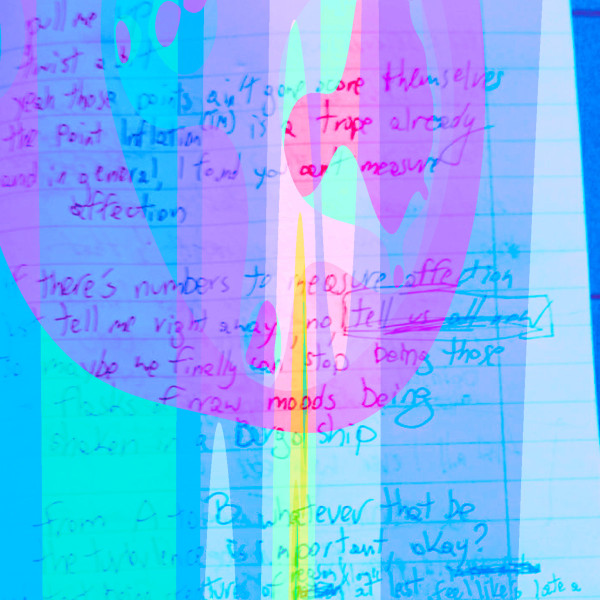 pull me up
twist a
yeah those points ain't gone score themselves
the Point Inflation (TM) is a trope already
and in general, I found you can't measure
affection
if there's numbers to measure affection
tell me right away, no tell us all now
so maybe we finally can stop being those
flasks of raw moods being
shaken in a Bargo ship
from A to B whatever that be
the turbulence is important, okay?
of at last feel like